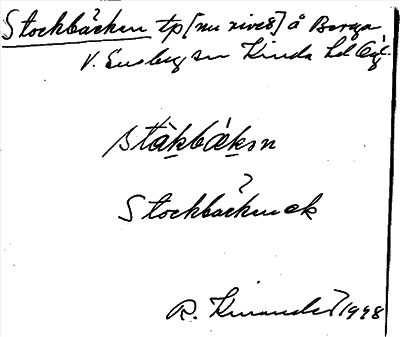 Stockbäcken tp [nu rivet] å Berga
V. Eneby sn Kinda hd Ög.
ståkbäkən
Stockbäcken ok
R. Kinander 1998